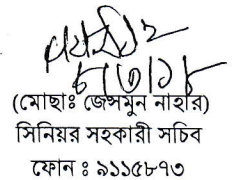 ৮/৩/১৮
(মোছাঃ জেসমুন নাহার)
সিনিয়র সহকারী সচিব
ফোন : ৯১১৫৮৭৩